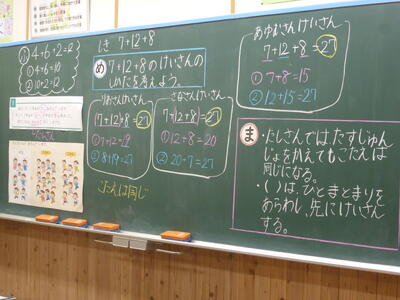 しき 7+12+8
4+6+2=12
①4+6=10
②10+2=12
め 7+12+8のけいさんの
しかたを考えよう。
りおさんけいさん
(7+12)+8=27
①7+12=19
②8+19=27
こたえは同じ
さなさんけいさん
7+(12+8)=27
①12+8=20
②20+7=27
あゆむさんけいさん
7+12+8=27
①7+8=15
②12+15=27
ま
・たしざんでは、たすじゅん
じょをかえてもこたえは
同じになる。
・( )は、ひとまとまりを
あらわし、先にけいさん
する。